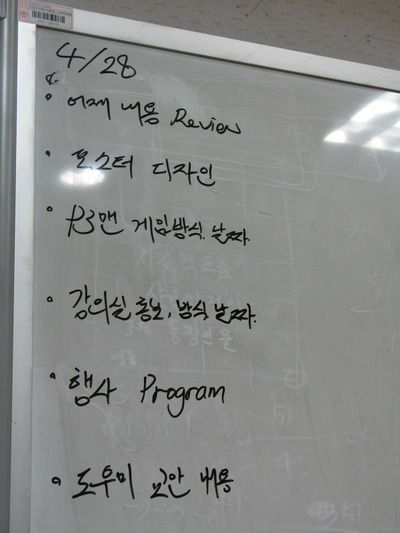 4/28
• 어제 내용 Review
• 포스터 디자인
• P3맨 게임방식, 날짜.
• 강의실 홍보, 방식 날짜.
• 행사 Program
• 도우미 교안 내용